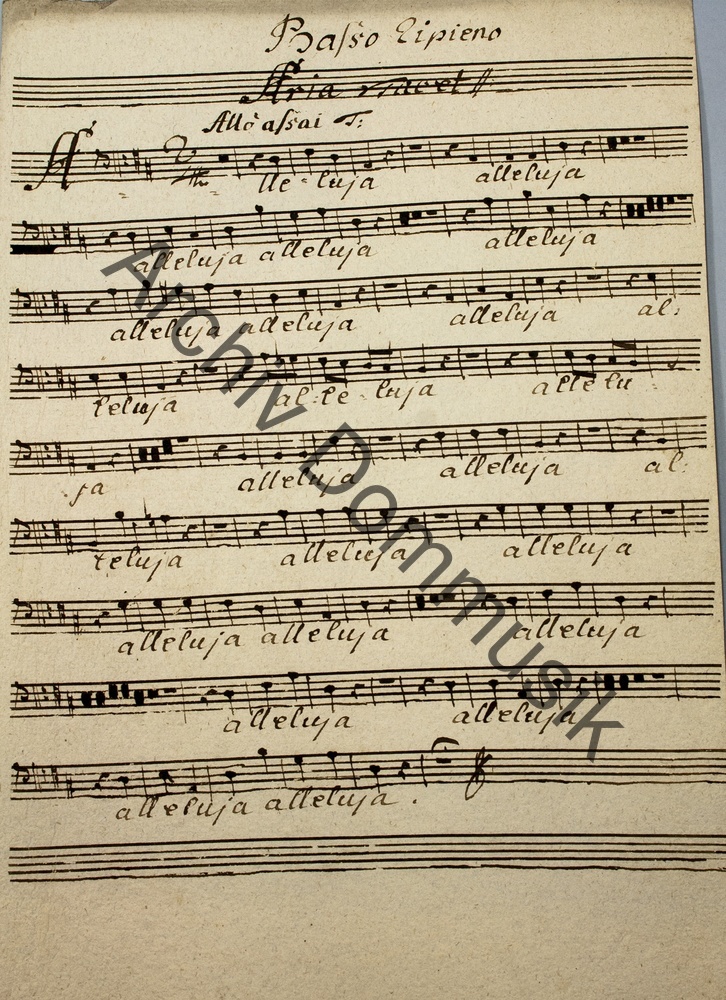 Baſso Ripieno
Aria
Allo aſsai T:
A lle-luja alleluja
alleluja alleluja alleluja
alleluja alleluja alleluja al:
leluja al-le-luja allelu-
ja alleluja alleluja al:
leluja alleluja alleluja
alleluja alleluja alleluja
alleluja alleluja
alleluja alleluja.
Archiv Dommusik